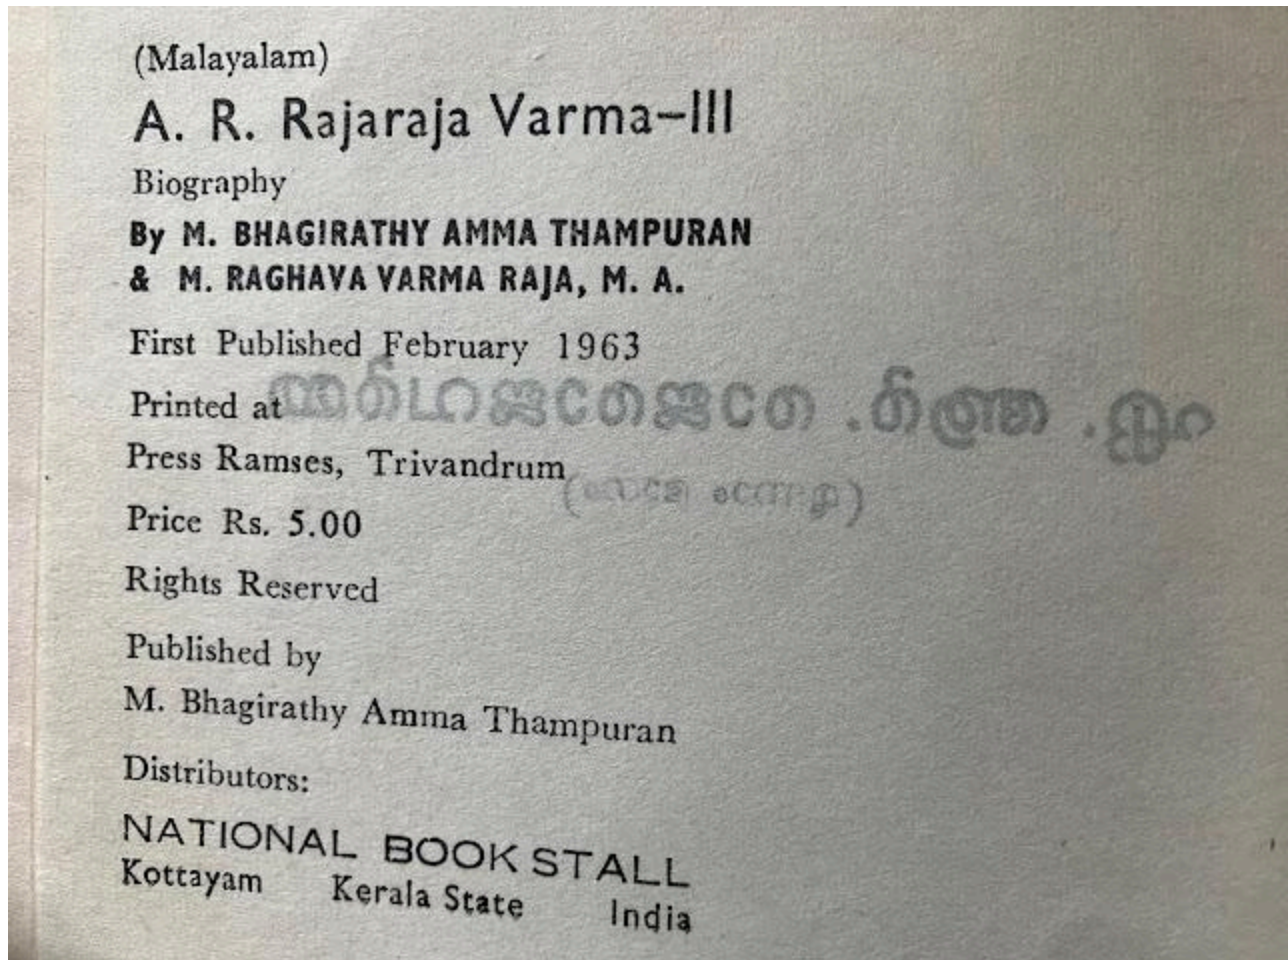 (Malayalam)
A. R. Rajaraja Varma—III
Biography
By M. BHAGIRATHY AMMA THAMPURAN
& M. RAGHAVA VARMA RAJA, M. A.
First Published February 1963
Printed at
Press Ramses, Trivandrum
Price Rs. 5.00
Rights Reserved
Published by
M. Bhagirathy Amma Thampuran
Distributors:
NATIONAL BOOK STALL
Kottayam Kerala State India